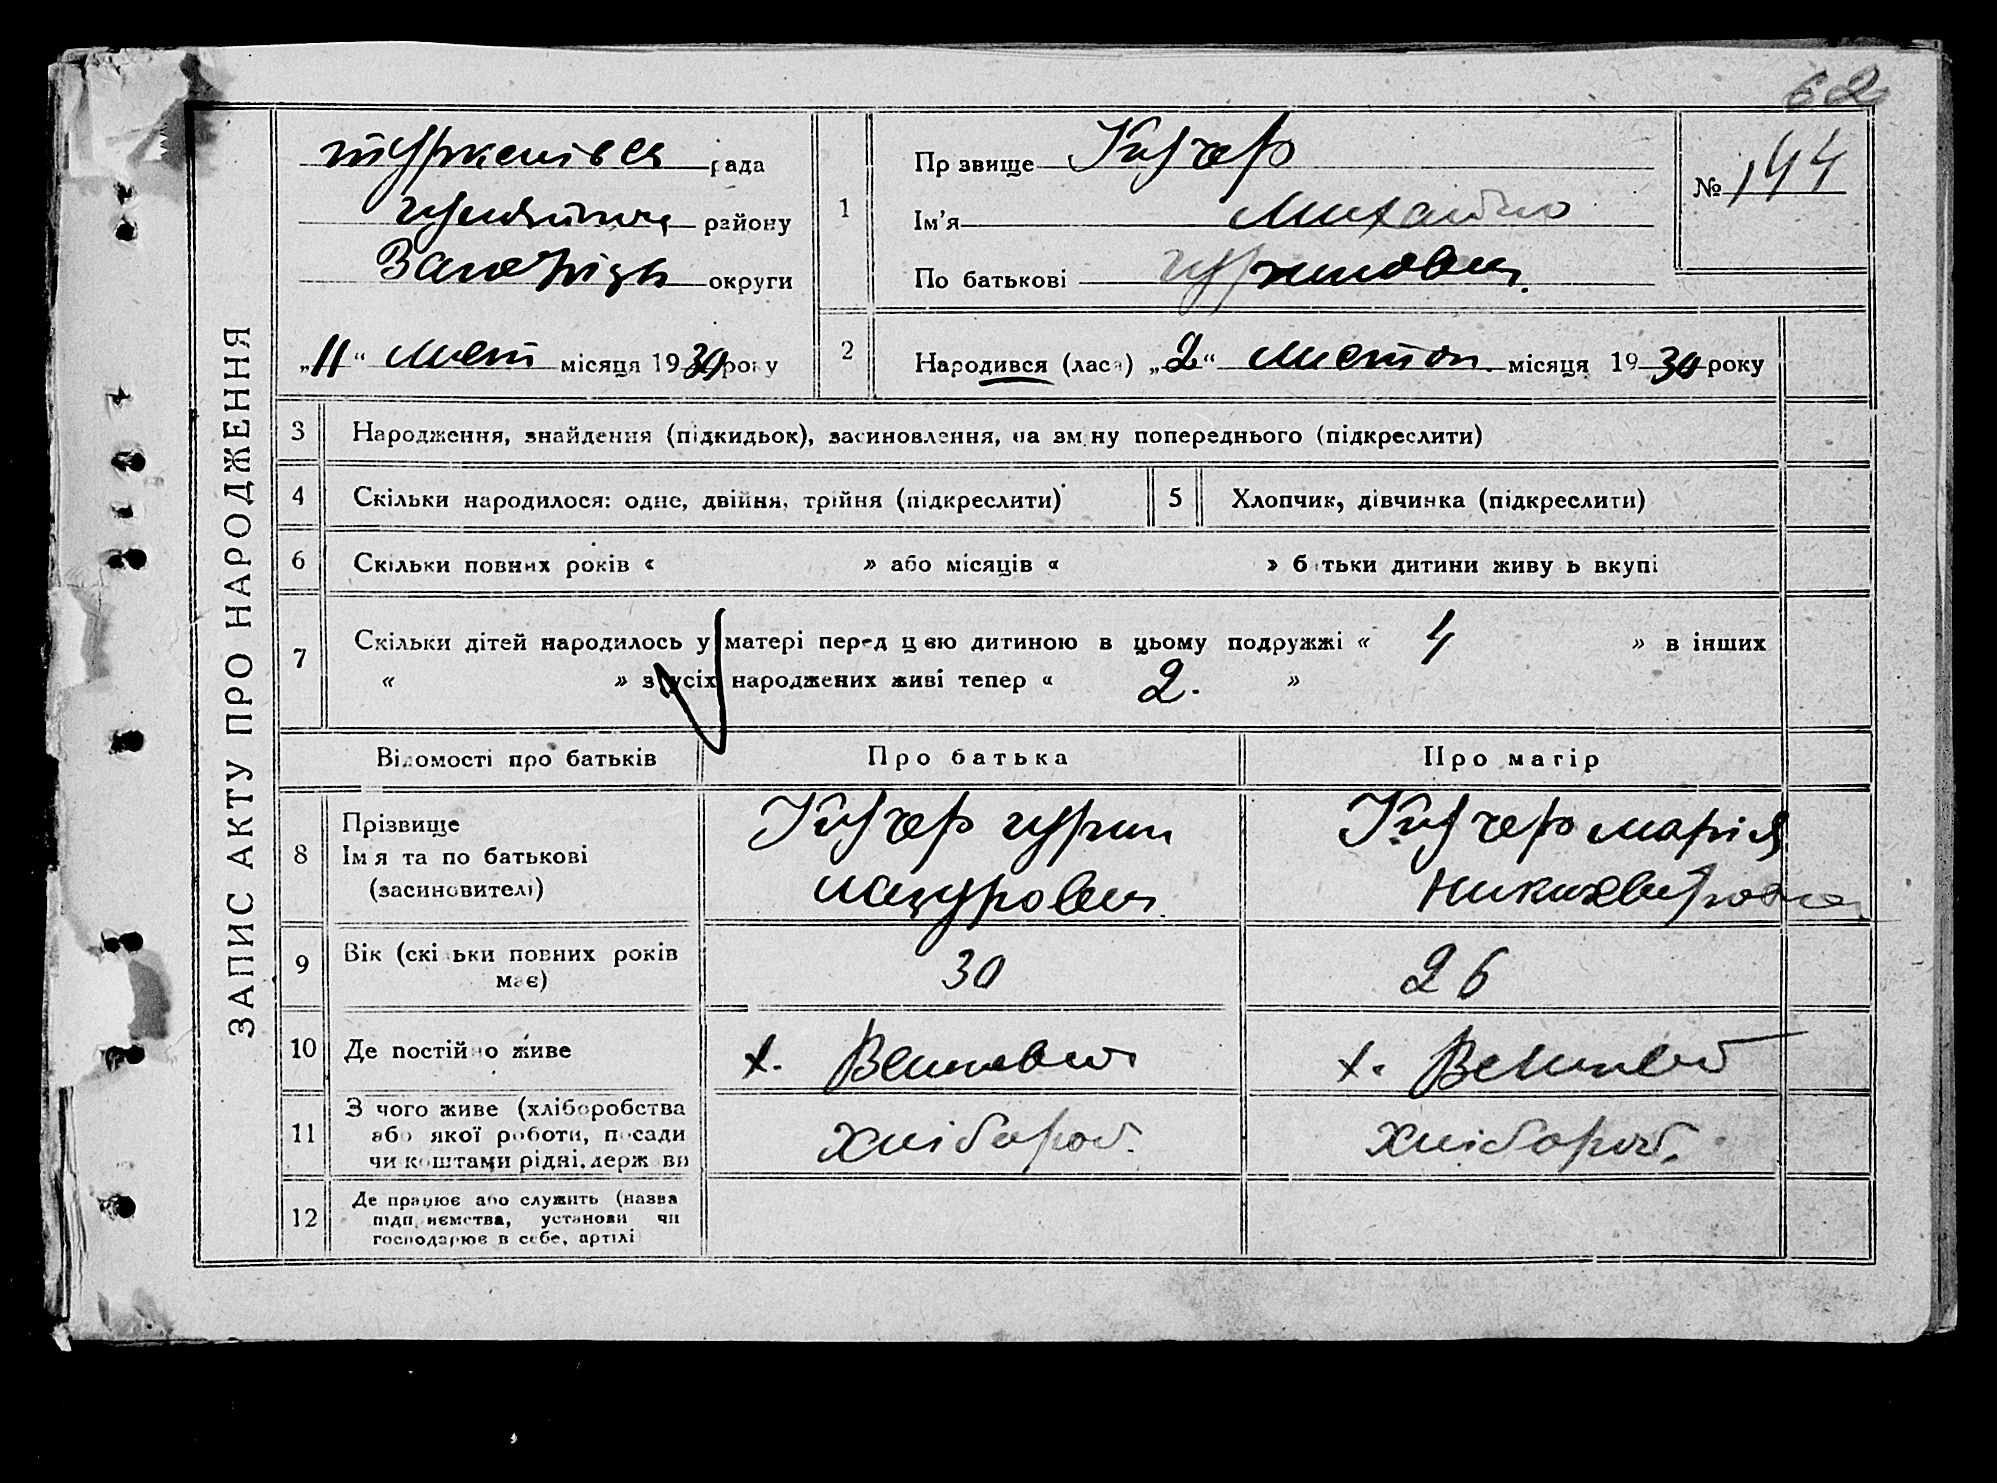 62
ЗАПИС АКТУ ПРО НАРОДЖЕННЯ
рада
району
округи
„11“ лист місяця 1930 року
1
Прізвище Кучер
Ім'я Михайло
По батькові гуринович.
№ 144
2
Народився (лася) „2“ листоп. місяця 1930 року
3 Народження, знайдення (підкидьок), засиновлення, на зміну попереднього (підкреслити)
4 Скільки народилося: одне, двійня, трійня (підкреслити)
5 Хлопчик, дівчинка (підкреслити)
6 Скільки повних років « » або місяців « » батьки дитини живуть вкупі
7 Скільки дітей народилось у матері перед цею дитиною в цьому подружжі « 4 » в інших
« » з усіх народжених живі тепер « 2. »
Відомості про батьків
Про батька
Про матір
8
Прізвище
Імя та по батькові
(засиновителі)
Кучер гурин
Кучер марія
9
Вік (скільки повних років
має)
30
26
10 Де постійно живе
х.
х.
11
З чого живе (хліборобства
або якої роботи, посади
чи коштами рідні, держави
хлібороб.
хлібороб.
12
Де працює або служить (назва
підприємства, установи чи
господарює в себе, артілі